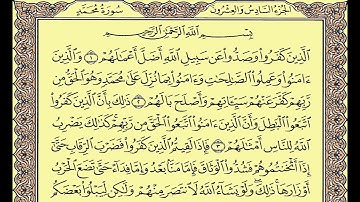 سُورَةُ مُحَمَّدٍ الجُزْءُ السَّادِسُ وَالعِشْرُونَ
بِسْمِ اللَّهِ الرَّحْمَٰنِ الرَّحِيمِ
الَّذِينَ كَفَرُوا وَصَدُّوا عَن سَبِيلِ اللَّهِ أَضَلَّ أَعْمَالَهُمْ ١ وَالَّذِينَ
ءَامَنُوا وَعَمِلُوا الصَّالِحَاتِ وَءَامَنُوا بِمَا نُزِّلَ عَلَىٰ مُحَمَّدٍ وَهُوَ الْحَقُّ مِن
رَّبِّهِمْ كَفَّرَ عَنْهُمْ سَيِّئَاتِهِمْ وَأَصْلَحَ بَالَهُمْ ٢ ذَٰلِكَ بِأَنَّ الَّذِينَ كَفَرُوا
اتَّبَعُوا الْبَاطِلَ وَأَنَّ الَّذِينَ ءَامَنُوا اتَّبَعُوا الْحَقَّ مِن رَّبِّهِمْ كَذَٰلِكَ يَضْرِبُ
اللَّهُ لِلنَّاسِ أَمْثَالَهُمْ ٣ فَإِذَا لَقِيتُمُ الَّذِينَ كَفَرُوا فَضَرْبَ الرِّقَابِ حَتَّىٰ
إِذَا أَثْخَنتُمُوهُمْ فَشُدُّوا الْوَثَاقَ فَإِمَّا مَنًّا بَعْدُ وَإِمَّا فِدَاءً حَتَّىٰ تَضَعَ الْحَرْبُ
أَوْزَارَهَا ذَٰلِكَ وَلَوْ يَشَاءُ اللَّهُ لَانتَصَرَ مِنْهُمْ وَلَٰكِن لِّيَبْلُوَا بَعْضَكُم